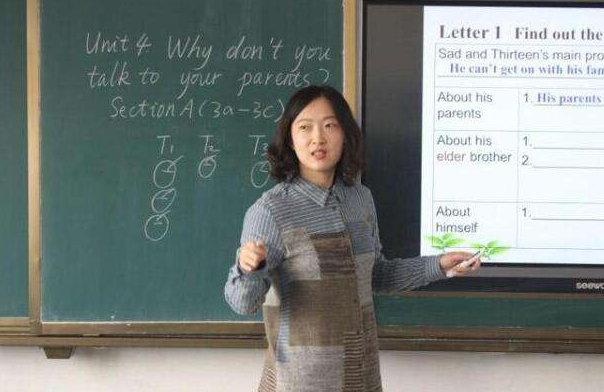 Unit 4 Why don't you
talk to your parents?
Section A (3a-3c)
T1 T2 T3
Letter 1 Find out the
Sad and Thirteen's main
He can't get on with his
About his parents
1. His parents
About his elder brother
1.
2.
About himself
1.